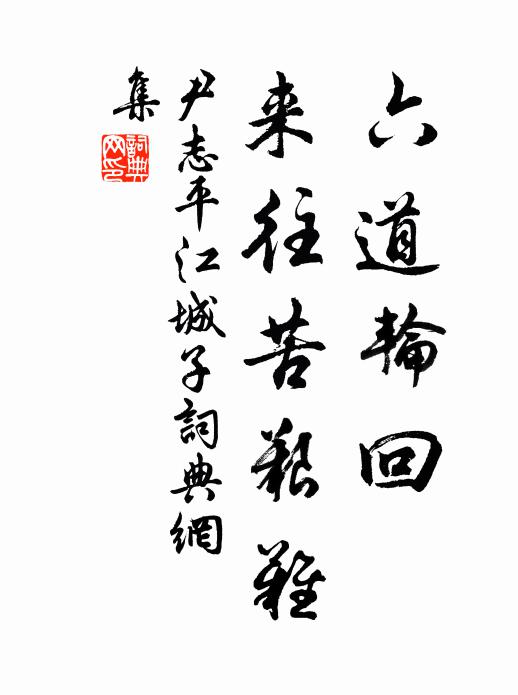 六道輪回
来往苦艱難
尹志平江城子詞典網
集
詞典網印